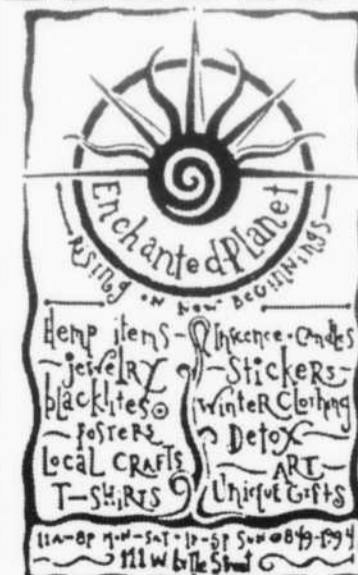 Enchanted Planet
Rising on New Beginnings
Hemp items
jewelry
blacklites
Posters
Local Crafts
T-Shirts
Inscence • Candles
Stickers
Winter Clothing
Detox
Art
Unique Gifts
11A-8P M-N-SAT • 1P-5P Sun @ 849-1994
Street